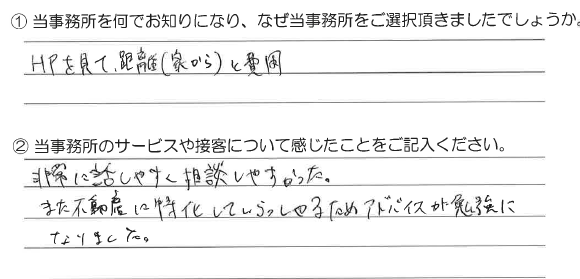 ① 当事務所を何でお知りになり、なぜ当事務所をご選択頂きましたでしょうか。
HPを見て、距離(家から)と費用
② 当事務所のサービスや接客について感じたことをご記入ください。
非常に話しやすく相談しやすかった。
また不動産に特化していらっしゃるためアドバイスが勉強に
なりました。